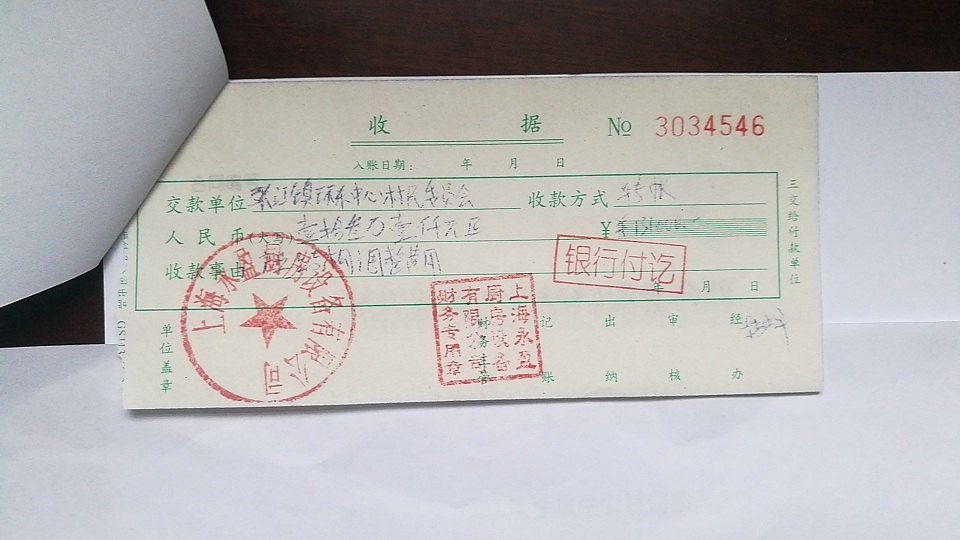 收 据 № 3034546
入账日期： 年 月 日
交款单位 张江镇 中心村民委员会 收款方式 转帐
人民币（大写） 壹拾叁万壹仟元正 ¥ 131000
收款事由 调整费用
银行付讫
年 月 日
三交给付款单位
上海永盈厨房设备有限公司
上海永盈厨房设备有限公司财务专用章
单位盖章 财务主管 记账 出纳 审核 经办